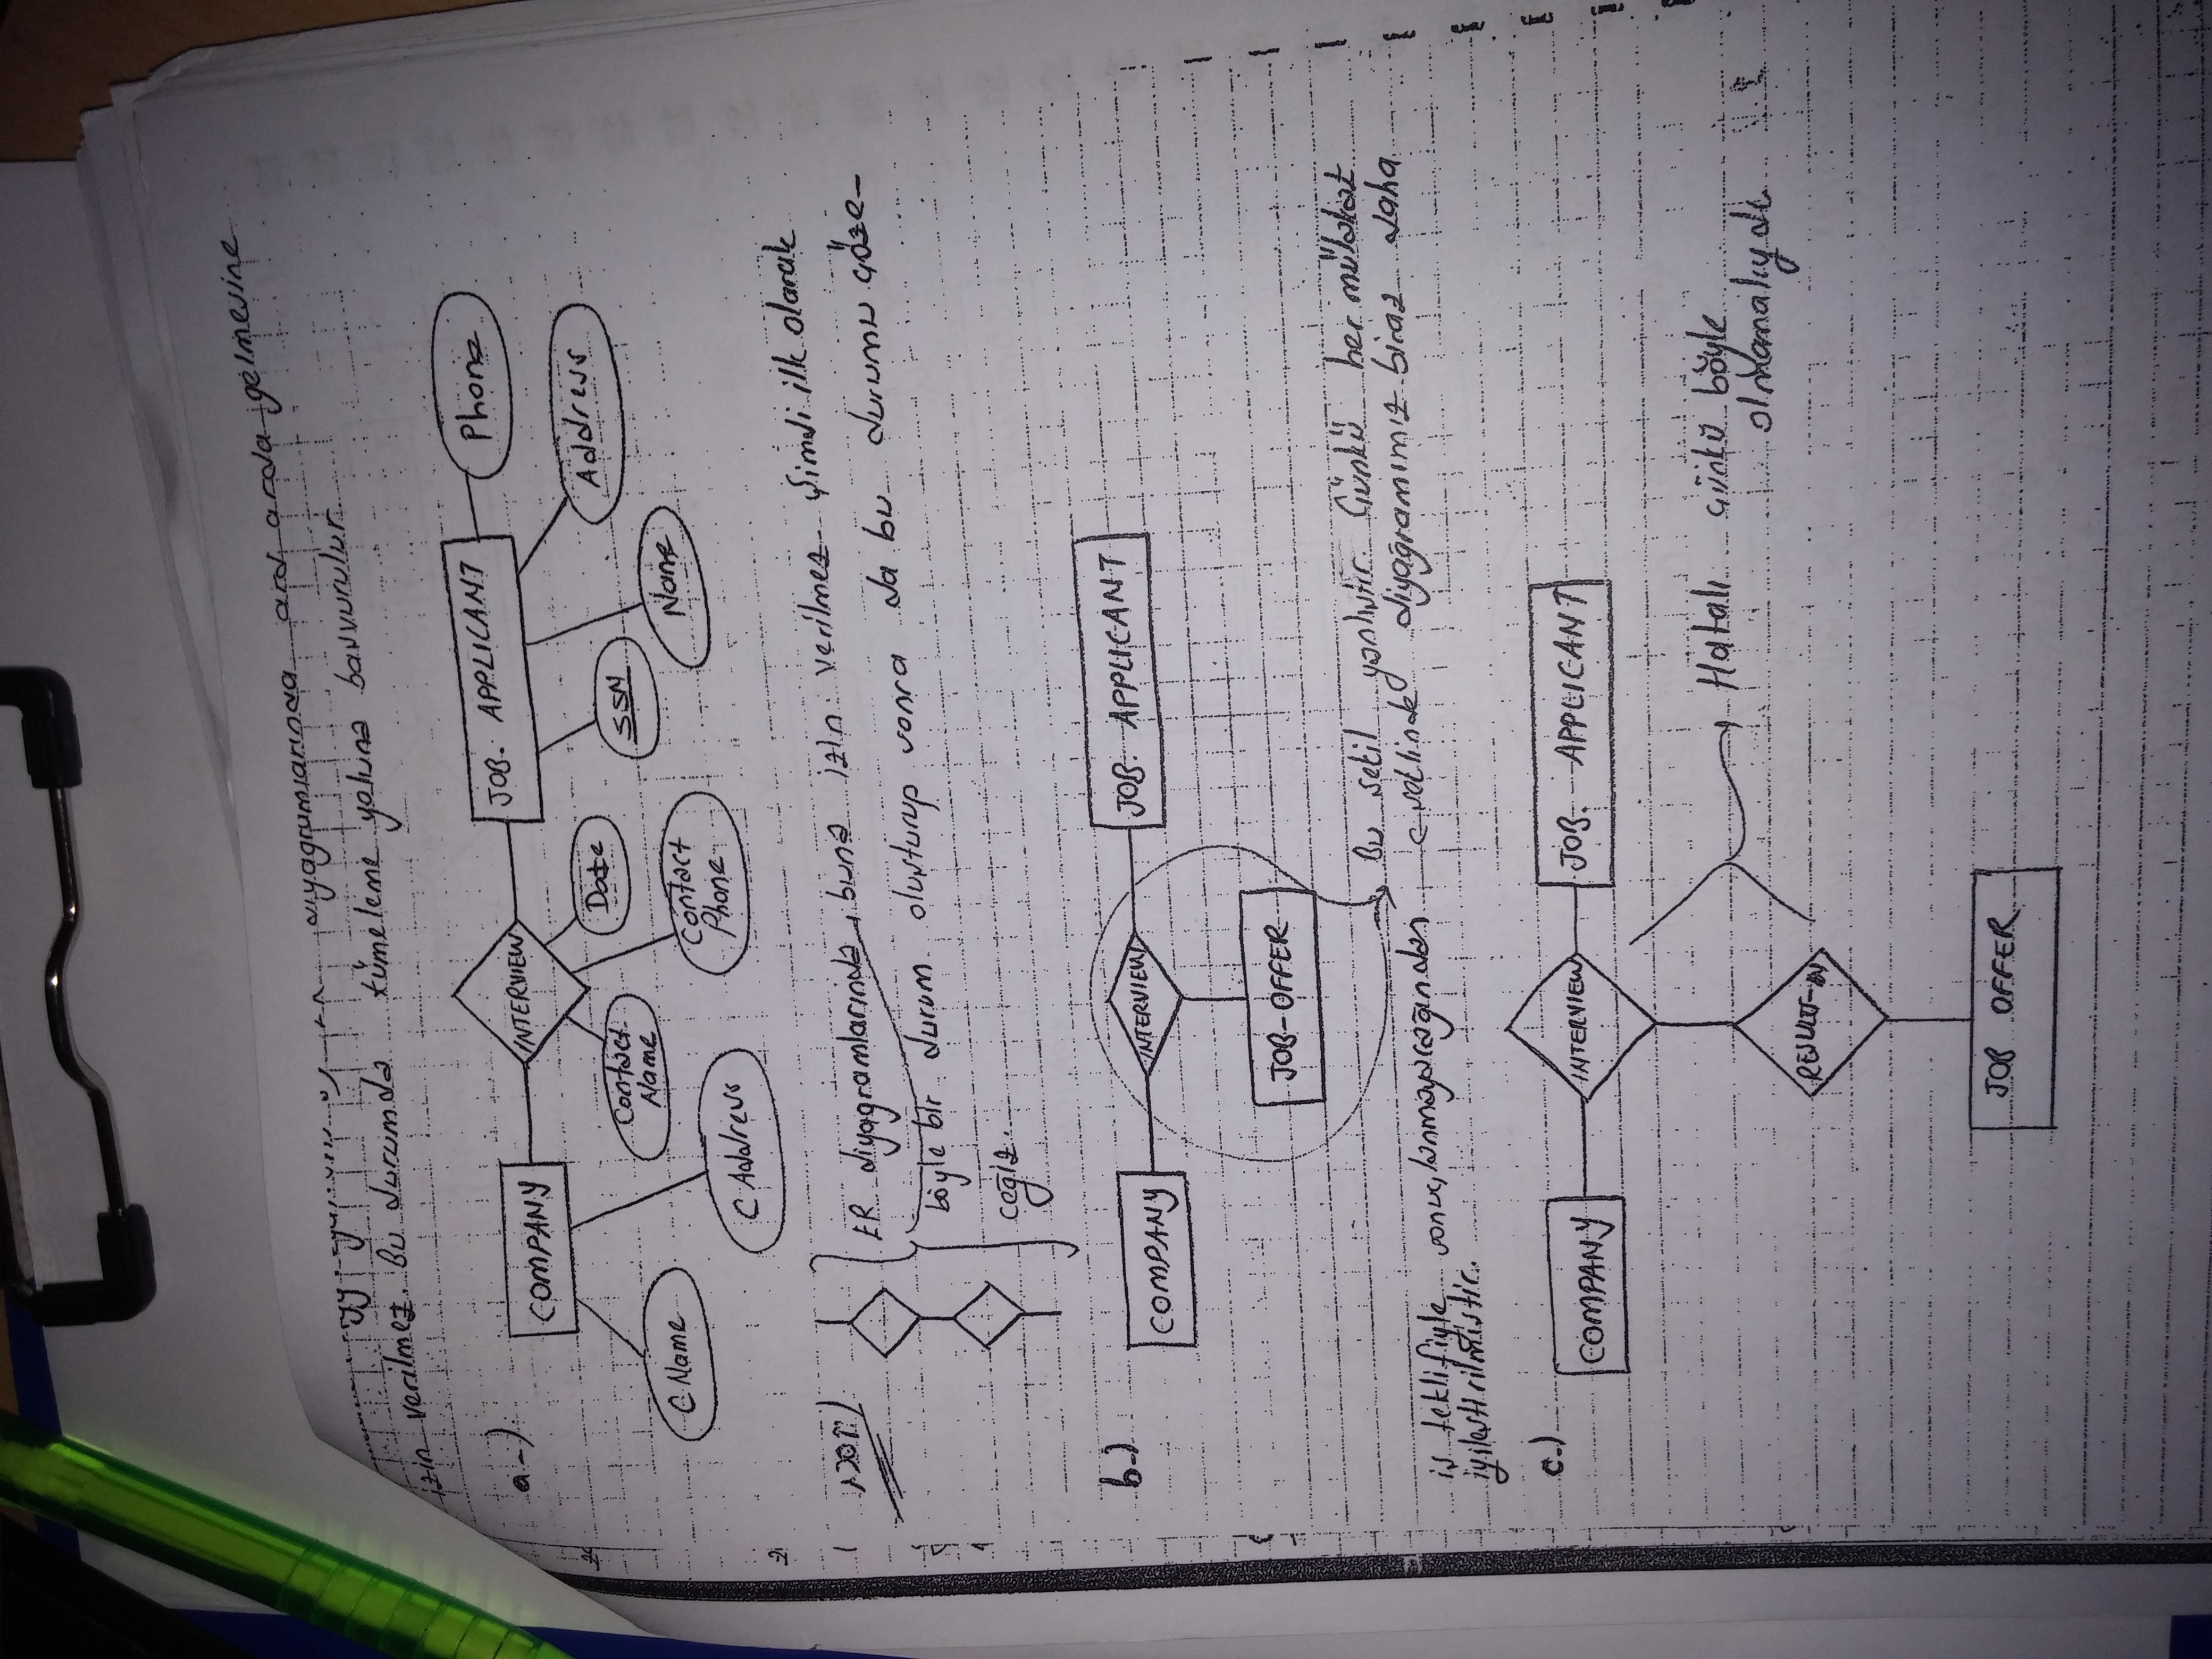 diyagramlarında ard arda gelmesine
izin verilmez. Bu durumda tümeleme yoluna başvurulur.
a-)
COMPANY
INTERVIEW
JOB. APPLICANT
Phone
CName
CAddress
Contact Name
Date
Contact Phone
SSN
Name
Address
ER diyagramlarında buna izin verilmez şimdi ilk olarak
böyle bir durum oluşturup sonra da bu durumu göze-
ceğiz.
b-)
COMPANY
INTERVIEW
JOB. APPLICANT
JOB-OFFER
Bu şekil yanlıştır. Çünkü her mülakat
iş teklifiyle sonuçlanmayacağından c şeklinde diyagramımız biraz daha
iyileştirilmiştir.
c-)
COMPANY
INTERVIEW
JOB. APPLICANT
RESULT-IN
Hatalı çünkü böyle
olmamalıydı
JOB OFFER